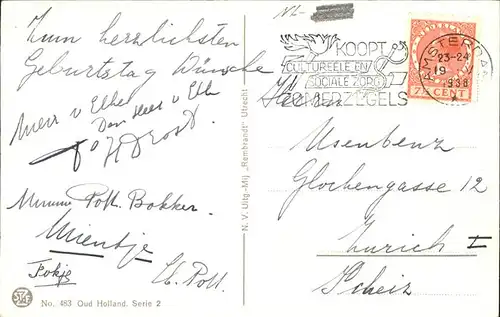 Zum herzlichsten
Geburtstag Wünsche
Meier v Elbe
Den Heer v Elb
H Drost.
Mimmi Pott. Bakker.
Mientje
Fokje
Lb. Pott.
No. 483 Oud Holland. Serie 2
N. V. Uitg-Mij „Rembrandt" Utrecht
NL-
KOOPT
CULTUREELE EN
SOCIALE ZORG
ZOMERZEGELS
AMSTERDAM
23-24
19
1938
NEDERLAND
7½ CENT
Usenbenz
Glochengasse 12
Zurich I
Scheiz